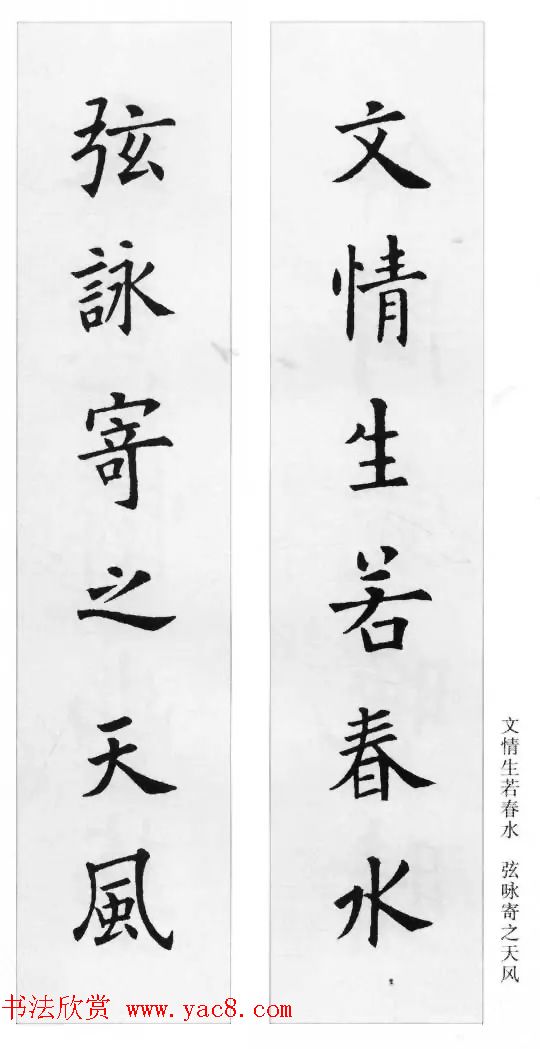 文情生若春水
弦詠寄之天風
文情生若春水 弦咏寄之天风
书法欣赏 www.yac8.com